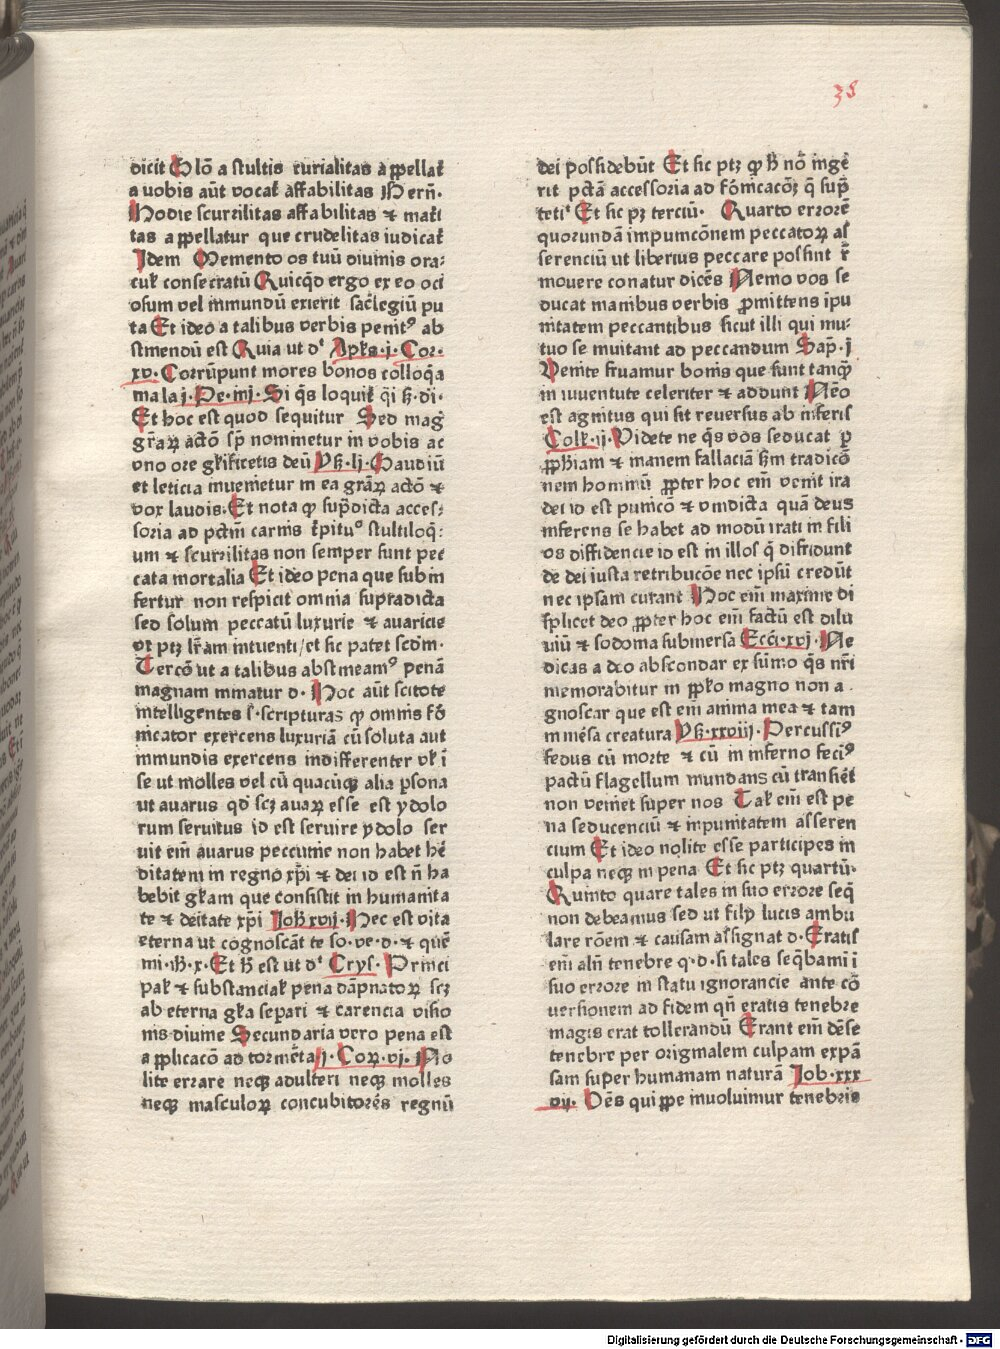 38
dicit Glō a stultis curialitas appellat̄
a uobis aūt vocat̄ affabilitas Bern̄.
Hodie scurrilitas affabilitas ⁊ mat̄i
tas appellatur que crudelitas iudicat̄
Idem Memento os tuū diuinis ora⸗
cul̄ consecratū Quicq̇d ergo ex eo oci
osum vel inmundū exierit sac̄legiū pu
ta Et ideo a talibus verbis penitꝰ ab
stinendū est Quia ut dᵗ Apl̄s .j. Cor.
xv. Corrūpunt mores bonos colloq̄a
mala j. Pe. iiij. Si q̇s loquit̄ q̇i ẜ. di.
Et hoc est quod sequitur Sed mag̊
gr̄aꝝ actō sp̄ nominetur in vobis ac
vno ore gl̄rificetis deū yẜ. lj. Gaudiū
et leticia inuenietur in ea grāꝝ actō ⁊
vox laudis. Et nota ꝙ sup̄dicta acces⸗
soria ad pctm̄ carnis t̄pituᵒ stultiloq̄⸗
um ⁊ scurrilitas non semper sunt pec
cata mortalia Et ideo pena que subin
fertur non respicit omnia supradicta
sed solum peccatū luxurie ⁊ auaricie
vt ptꝫ lr̄am intuenti/et sic patet scdm̄.
Tercō ut a talibus abstineamꝰ penā
magnam minatur d. Hoc aūt scitote
intelligentes s̄. scripturas ꝙ omnis fō
nicator exercens luxuriā cū soluta aut
inmundis exercens indifferenter vl̄ ī
se ut molles vel cū quacūqꝫ alia ꝑsona
ut auarus qd̄ scꝫ auaꝝ esse est ydolo
rum seruitus id est seruire ydolo ser
uit eīn auarus peccunie non habet hē
ditatem in regno xp̄i ⁊ dei id est n̄ ha
bebit gl̄am que consistit in humanita
te ⁊ deitate xp̄i Joħ xvij. Hec est vita
eterna ut cognoscāt te so. ve. d. ⁊ quē
mi. ih̄. x. Et ħ est ut dᵗ Crys. Princi
pal̄ ⁊ substancial̄ pena dāpnatoꝝ scꝫ
ab eterna gl̄a sep̄ari ⁊ carencia visio
nis diuine Secundaria vero pena est
applicacō ad tormēta j. Coꝝ. vj. No
lite errare neqꝫ adulteri neqꝫ molles
neqꝫ masculoꝝ concubitorēs regnū
dei possidebūt Et sic ptꝫ ꝙ ħ nō ingē
rit pctā accessoria ad fōnicacōꝫ q̄ sup̄
tetiᵗ Et sic pꝫ terciū. Quarto errorē
quorundā inpunicōnem peccatoꝝ as̄
serenciū ut liberius peccare possint r̄
mouere conatur dicēs Nemo vos se
ducat manibus verbis ꝓmittens īpu
nitatem peccantibus sicut illi qui mu⸗
tuo se inuitant ad peccandum Sap̄. ij
Venite fruamur bonis que sunt tanq̄
in iuuentute celeriter ⁊ addunt Nēo
est agnitus qui sit reuersus ab inferis
Coll̄. ij. Videte ne q̇s vos seducat ꝑ
ꝓphiam ⁊ inanem fallaciā ẜm tradicō
nem hominū ꝓpter hoc eīn venit ira
dei id est punicō ⁊ vindicta quā deus
inferens se habet ad modū irati in fili
os diffidencie id est in illos q̄ difidunt
de dei iusta retribucōe nec ipsū credūt
nec ipsam curant Hoc eīn maxime di
splicet deo ꝓpter hoc eīn factū est dilu
uiū ⁊ sodoma submersa Ecc̄i. xvj. Ne
dicas a deo abscondar ex sūmo q̇s nr̄i
memorabitur in ppl̄o magno non a .
gnoscar que est eīn anima mea ⁊ tam
in mēsa creatura yẜ. xxviij. Percussiꝰ
fedus cū morte ⁊ cū in inferno feciꝰ
pactū flagellum inundans cū transiēt
non veniet super nos Tal̄ eīn est pe
na seducenciū ⁊ inpunitatem asseren
cium Et ideo nolite esse participes in
culpa neqꝫ in pena Et sic ptꝫ quartū.
Quinto quare tales in suo errore seq̄
non debeamus sed ut filij lucis ambu
lare rōem ⁊ causam assignat d. Eratis
eīn aln̄ tenebre q. d. si tales seq̄bamī ī
suo errore in statu ignorancie ante cō
uersionem ad fidem qn̄ eratis tenebre
magis erat tollerandū Erant eīn dēse
tenebre per originalem culpam expā
sam super humanam naturā Job. xxx
vij. Oēs qui ꝓpe inuoluimur tenebris
Digitalisierung gefördert durch die Deutsche Forschungsgemeinschaft - DFG